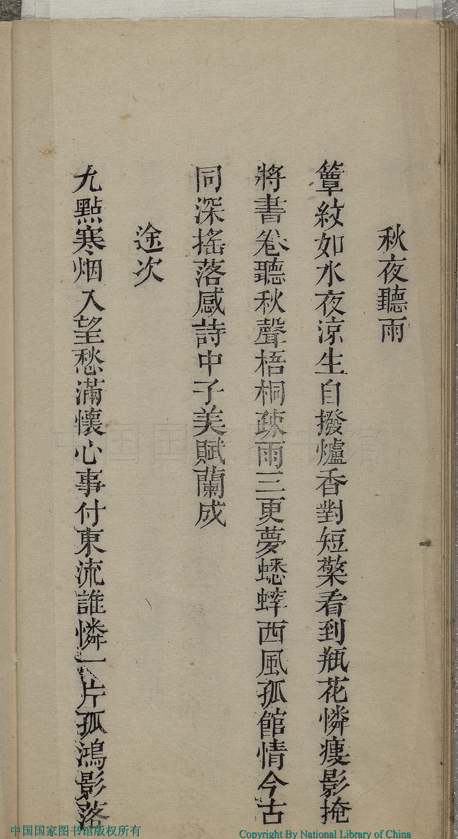 秋夜聽雨
簟紋如水夜涼生自撥爐香對短檠看到瓶花憐瘦影掩
將書卷聽秋聲梧桐疎雨三更夢蟋蟀西風孤館情今古
同深搖落感詩中子美賦蘭成
途次
九點寒烟入望愁滿懷心事付東流誰憐一片孤鴻影落
中国国家图书馆版权所有
Copyright By National Library of China